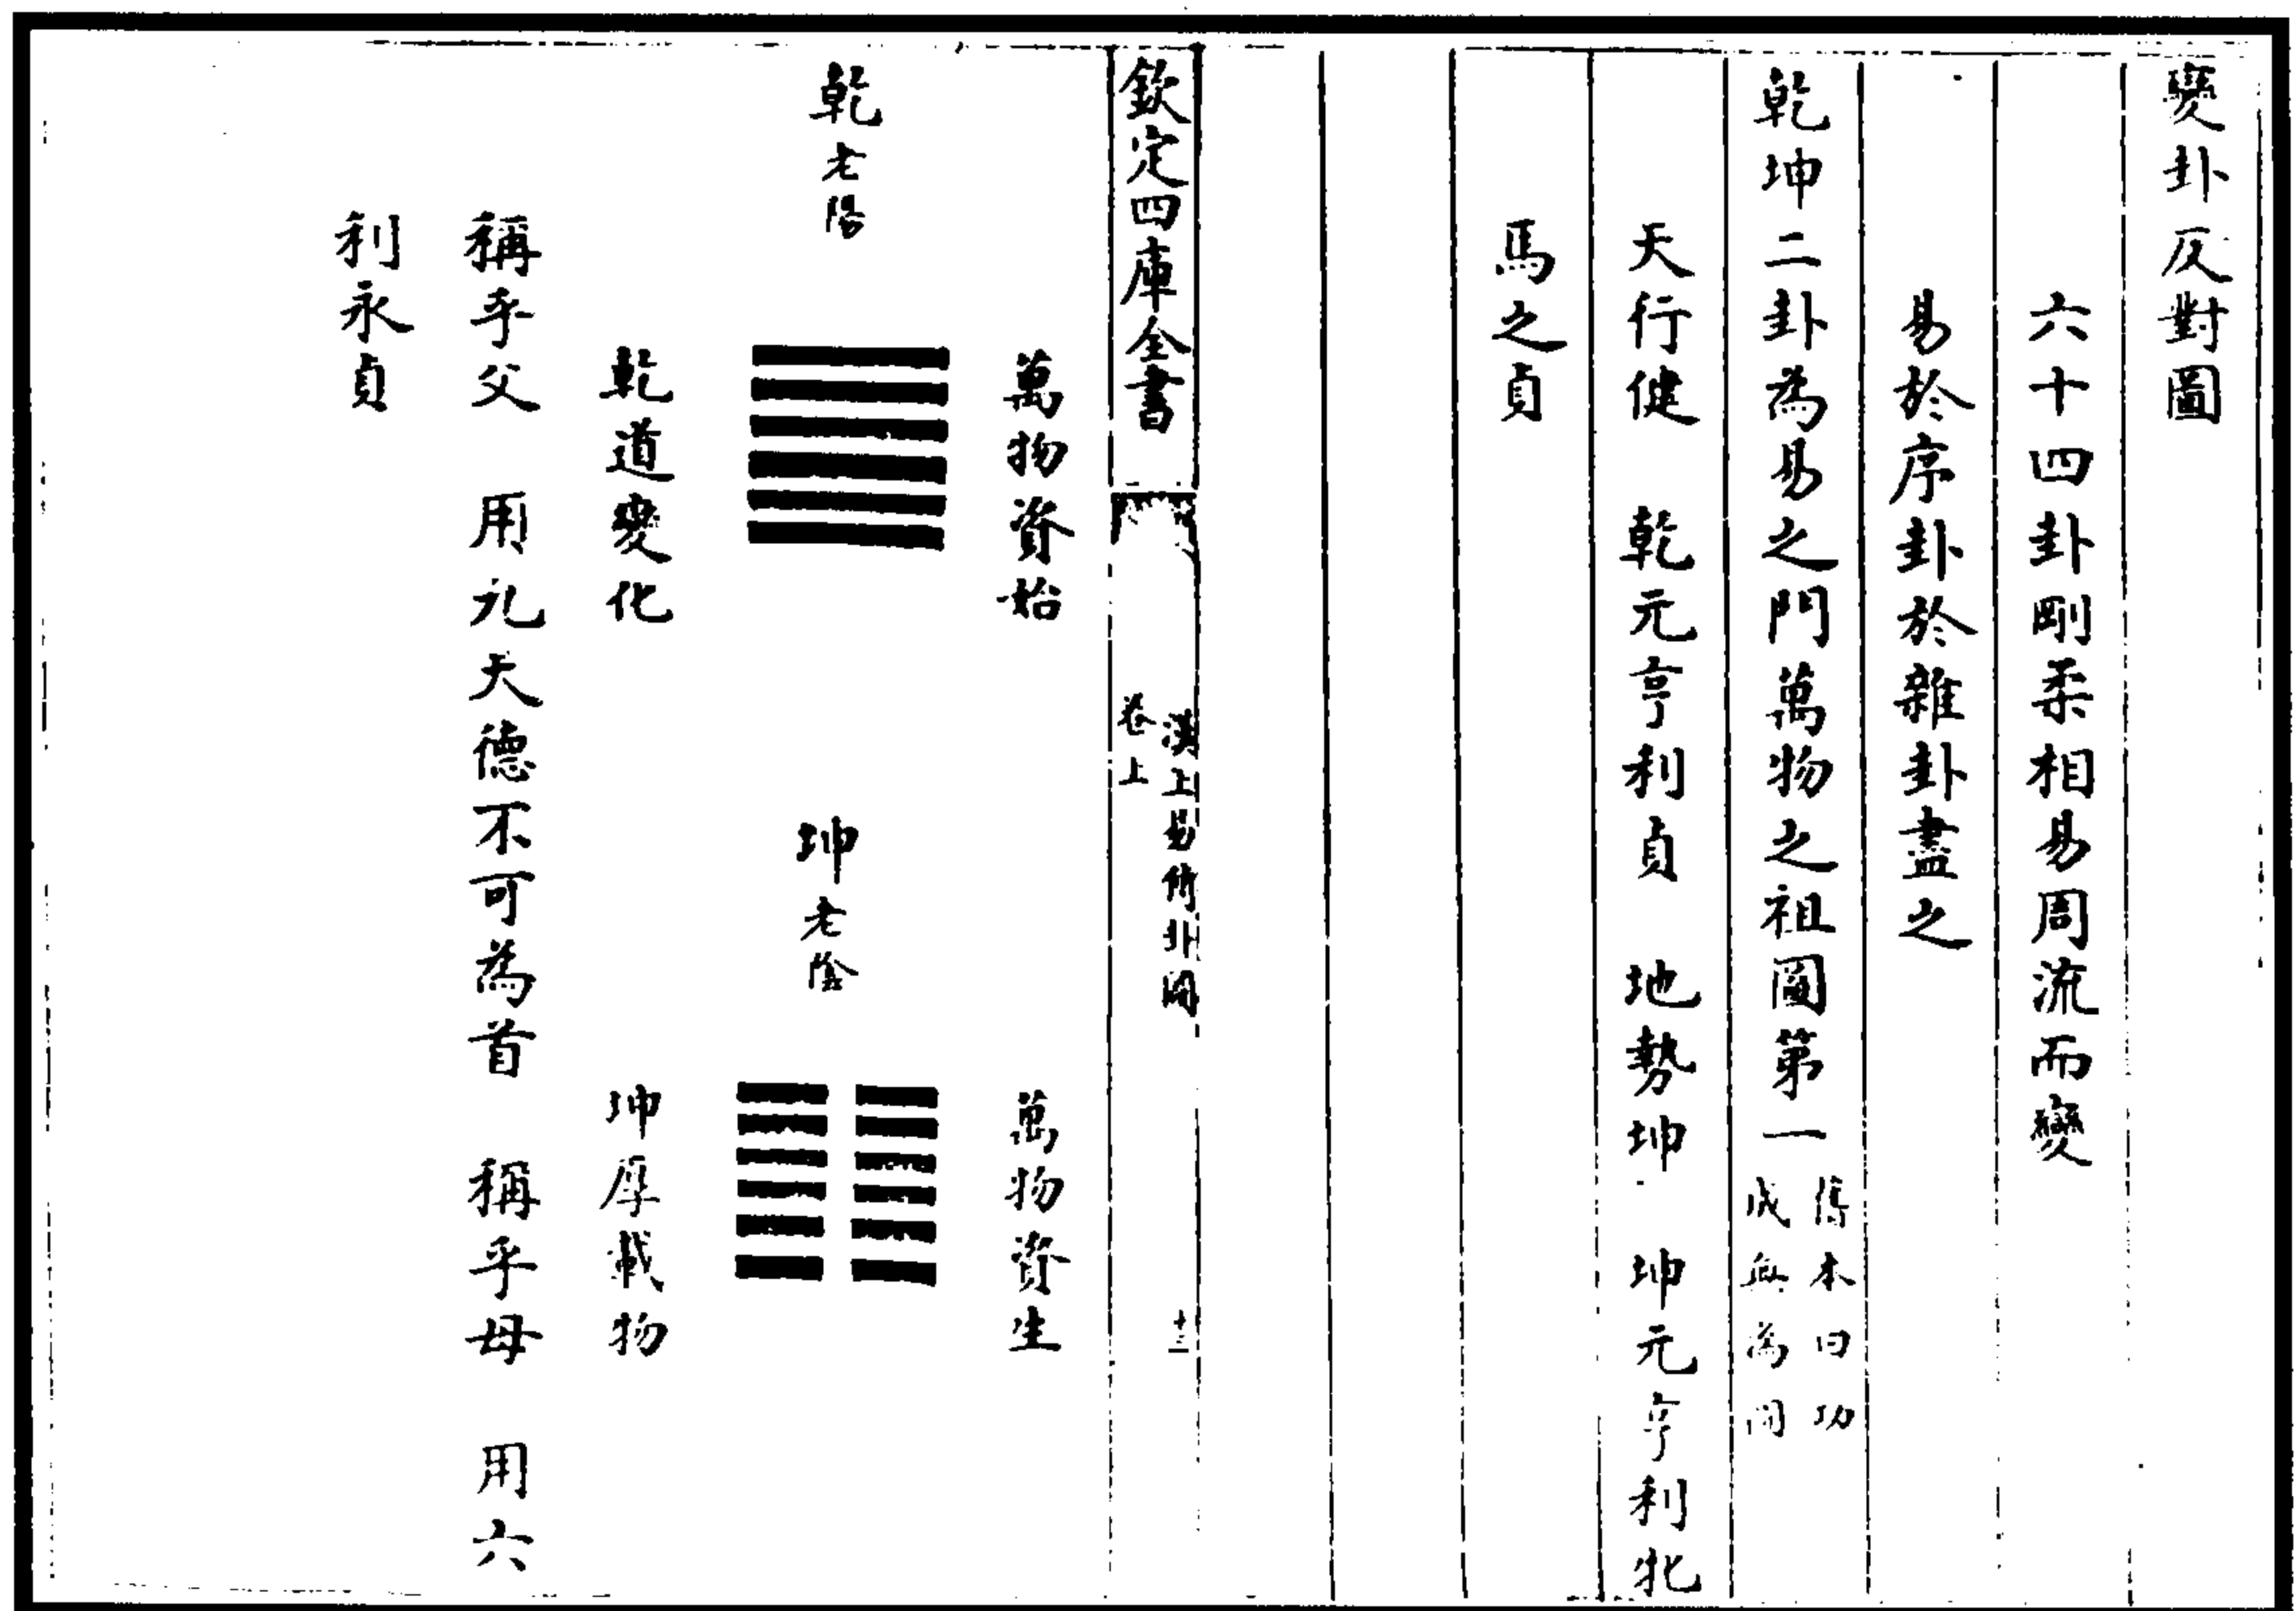 變卦反對圖
六十四卦剛柔相易周流而變
易於序卦於雜卦盡之
乾坤二卦為易之門萬物之祖圖第一
舊本曰功
成無為圖
天行健 乾元亨利貞 地勢坤 坤元亨利牝
馬之貞
欽定四庫全書
漢上易傳卦圖
卷上
十三
萬物資始 萬物資生
乾老陽 坤老陰
乾道變化 坤厚載物
稱乎父 用九天德不可為首 稱乎母 用六
利永貞